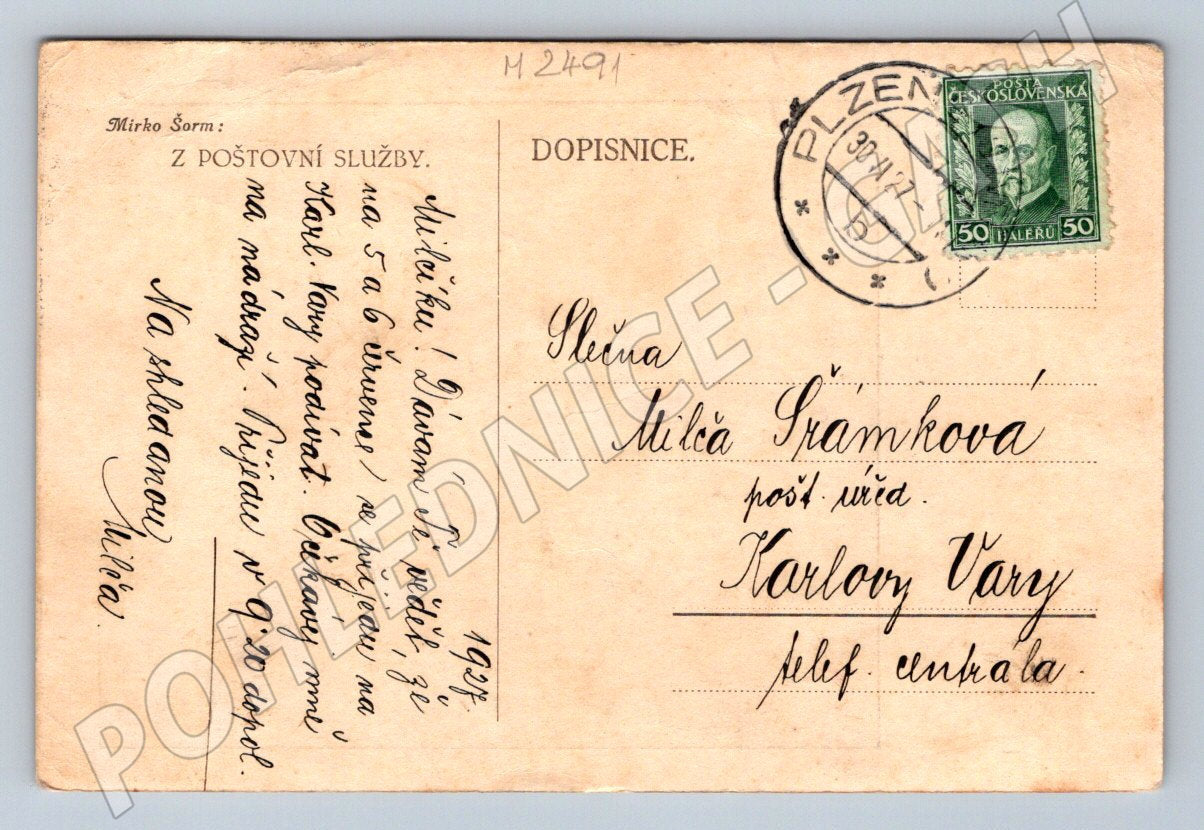 M 2491
Mirko Šorm:
Z POŠTOVNÍ SLUŽBY.
DOPISNICE.
PLZEŇ
30.VI.27
b
POŠTA
ČESKOSLOVENSKÁ
50 HALÉŘŮ 50
1927.
Milčíku! Dávam Ti vědět, že
na 5 a 6 července se přijedu na
Karl. Vary podívat. Očkávej mne
na nádraží. Přijedu v 9·20 dopol.
Na shledanou
Milča.
Slečna
Milča Šrámková
pošt. úřed.
Karlovy Vary
telef. centrála.
POHLEDNICE - CACH